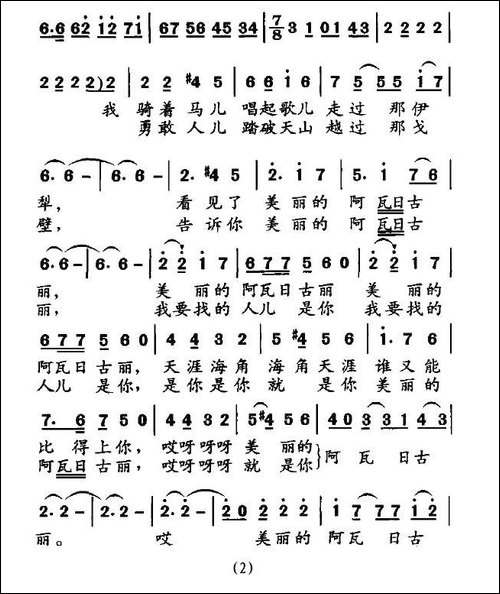 6·6 62 12 71 | 67 56 45 34 | 7/8 3 101 43 | 2 2 2 2 |
2 2 2 2) 2 | 2 2 #4 5 | 6 6 1 6 | 7 5 5 5 1 7 |
我 骑着马儿 唱起歌儿 走过 那伊
勇敢人儿 踏破天山 越过 那戈
6·6 – | 6·6 – | 2· #4 5 | 2· 1 7 | 5· 1 7 6 |
犁, 看见了 美丽的 阿瓦日古
壁, 告诉你 美丽的 阿瓦日古
6·6 – | 6·6 – | 2 2 1 7 | 6 7 7 5 6 0 | 2 2 1 7 |
丽, 美 丽的 阿瓦日古丽 美 丽的
丽, 我要找的 人儿 是你 我要找的
6 7 7 5 6 0 | 4 4 3 2 | 5 #4 5 6 | 1· 7 6 |
阿瓦日 古丽, 天涯海角 海角天涯 谁又能
人儿 是你, 是你是你 就 是你 美丽的
7· 6 7 5 0 | 4 4 3 2 | 5 #4 5 6 | 4 0 3 3 1 4 3 |
比 得上你, 哎呀呀呀 美 丽的 } 阿 瓦 日古
阿瓦日 古丽, 哎呀呀呀 就 是你
2·2 – | 2·2 – | 2 0 2 2 2 | 1 7 7 12 1 |
丽。 哎 美丽的 阿瓦 日古
(2)